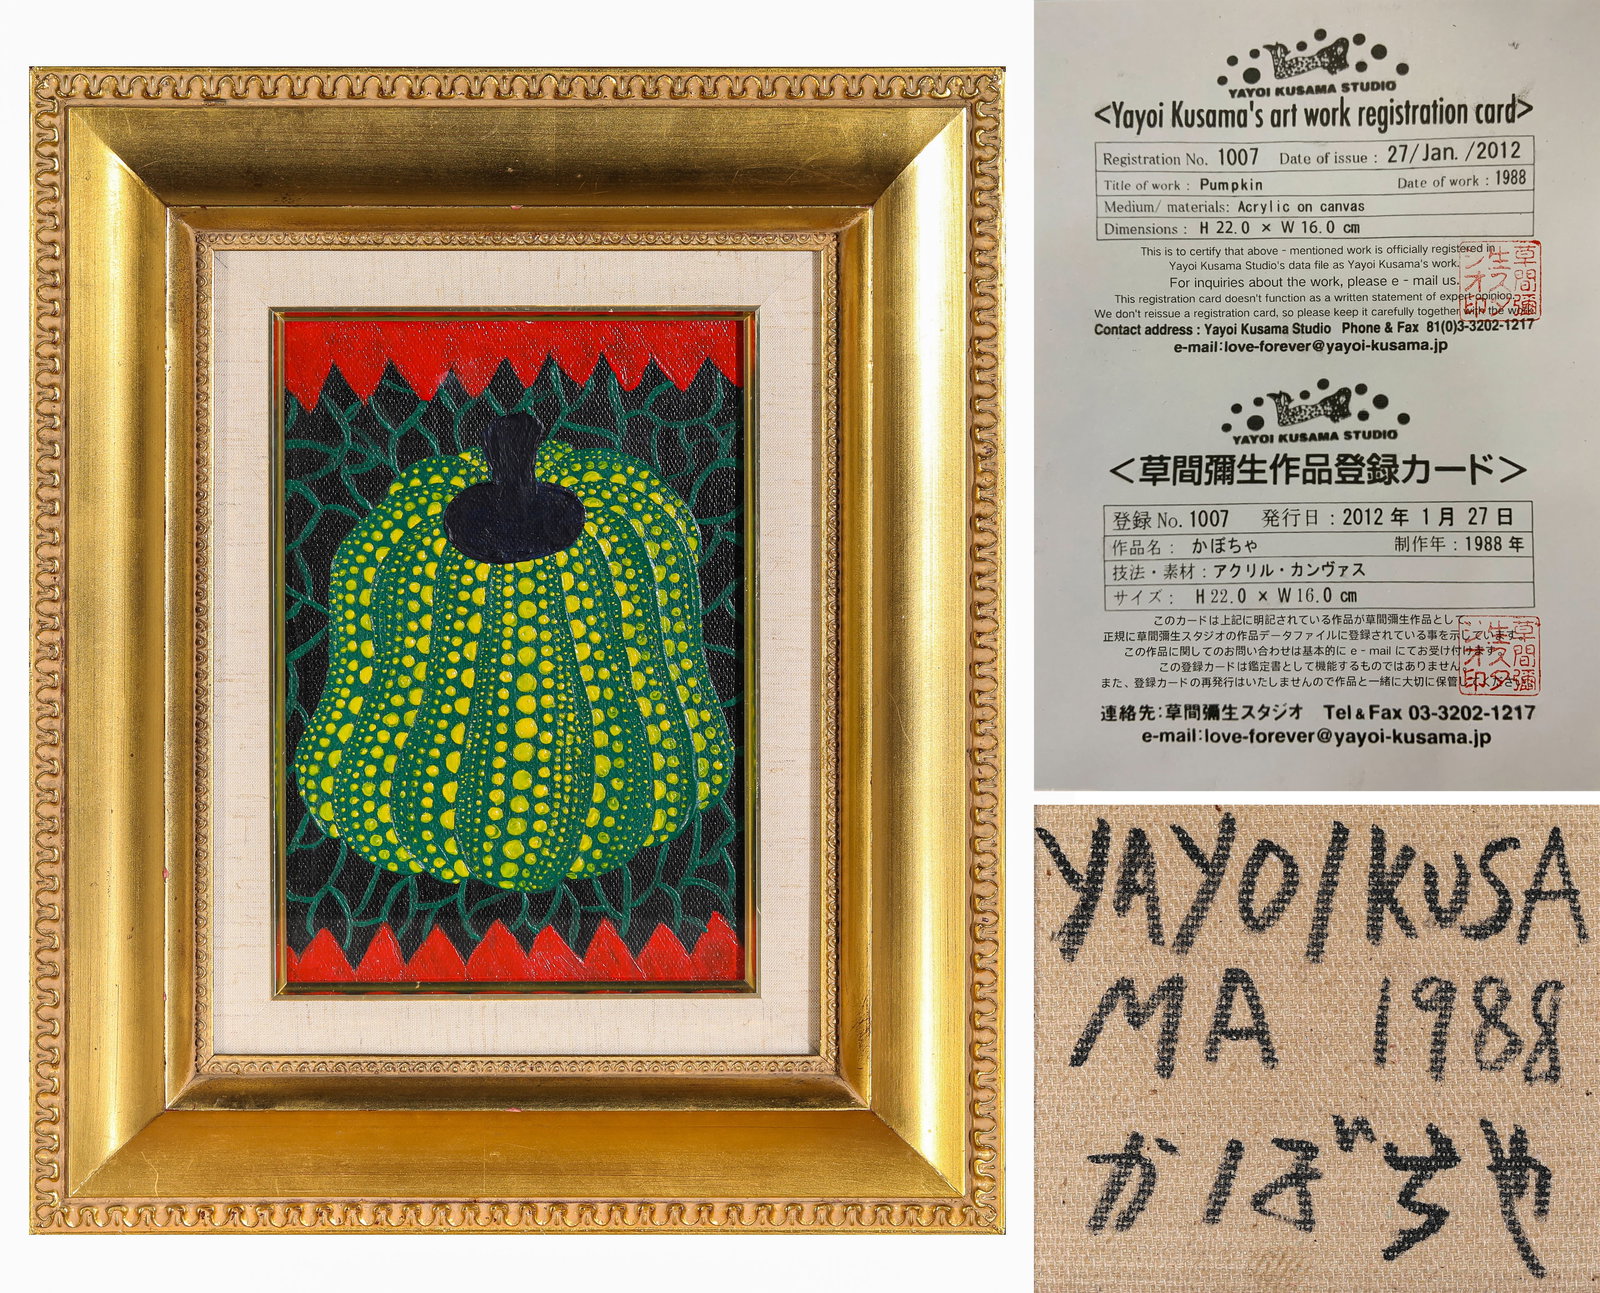 YAYOI KUSAMA STUDIO
<Yayoi Kusama's art work registration card>
Registration No. 1007 Date of issue : 27/Jan. /2012
Title of work : Pumpkin Date of work : 1988
Medium/ materials: Acrylic on canvas
Dimensions : H 22.0 × W 16.0 cm
This is to certify that above - mentioned work is officially registered in
Yayoi Kusama Studio's data file as Yayoi Kusama's work.
For inquiries about the work, please e - mail us.
This registration card doesn't function as a written statement of expert opinion.
We don't reissue a registration card, so please keep it carefully together with the work.
Contact address : Yayoi Kusama Studio Phone & Fax 81(0)3-3202-1217
e-mail:love-forever@yayoi-kusama.jp
YAYOI KUSAMA STUDIO
<草間彌生作品登録カード>
登録 No. 1007 発行日 : 2012 年 1 月 27 日
作品名 : かぼちゃ 制作年 : 1988 年
技法・素材 : アクリル・カンヴァス
サイズ : H 22.0 × W 16.0 cm
このカードは上記に明記されている作品が草間彌生作品として、
正規に草間彌生スタジオの作品データファイルに登録されている事を示しています。
この作品に関してのお問い合わせは基本的に e - mail にてお受け付けます。
この登録カードは鑑定書として機能するものではありません。
また、登録カードの再発行はいたしませんので作品と一緒に大切に保管してください。
連絡先:草間彌生スタジオ Tel & Fax 03-3202-1217
e-mail:love-forever@yayoi-kusama.jp
YAYOI KUSA
MA 1988
かぼちゃ